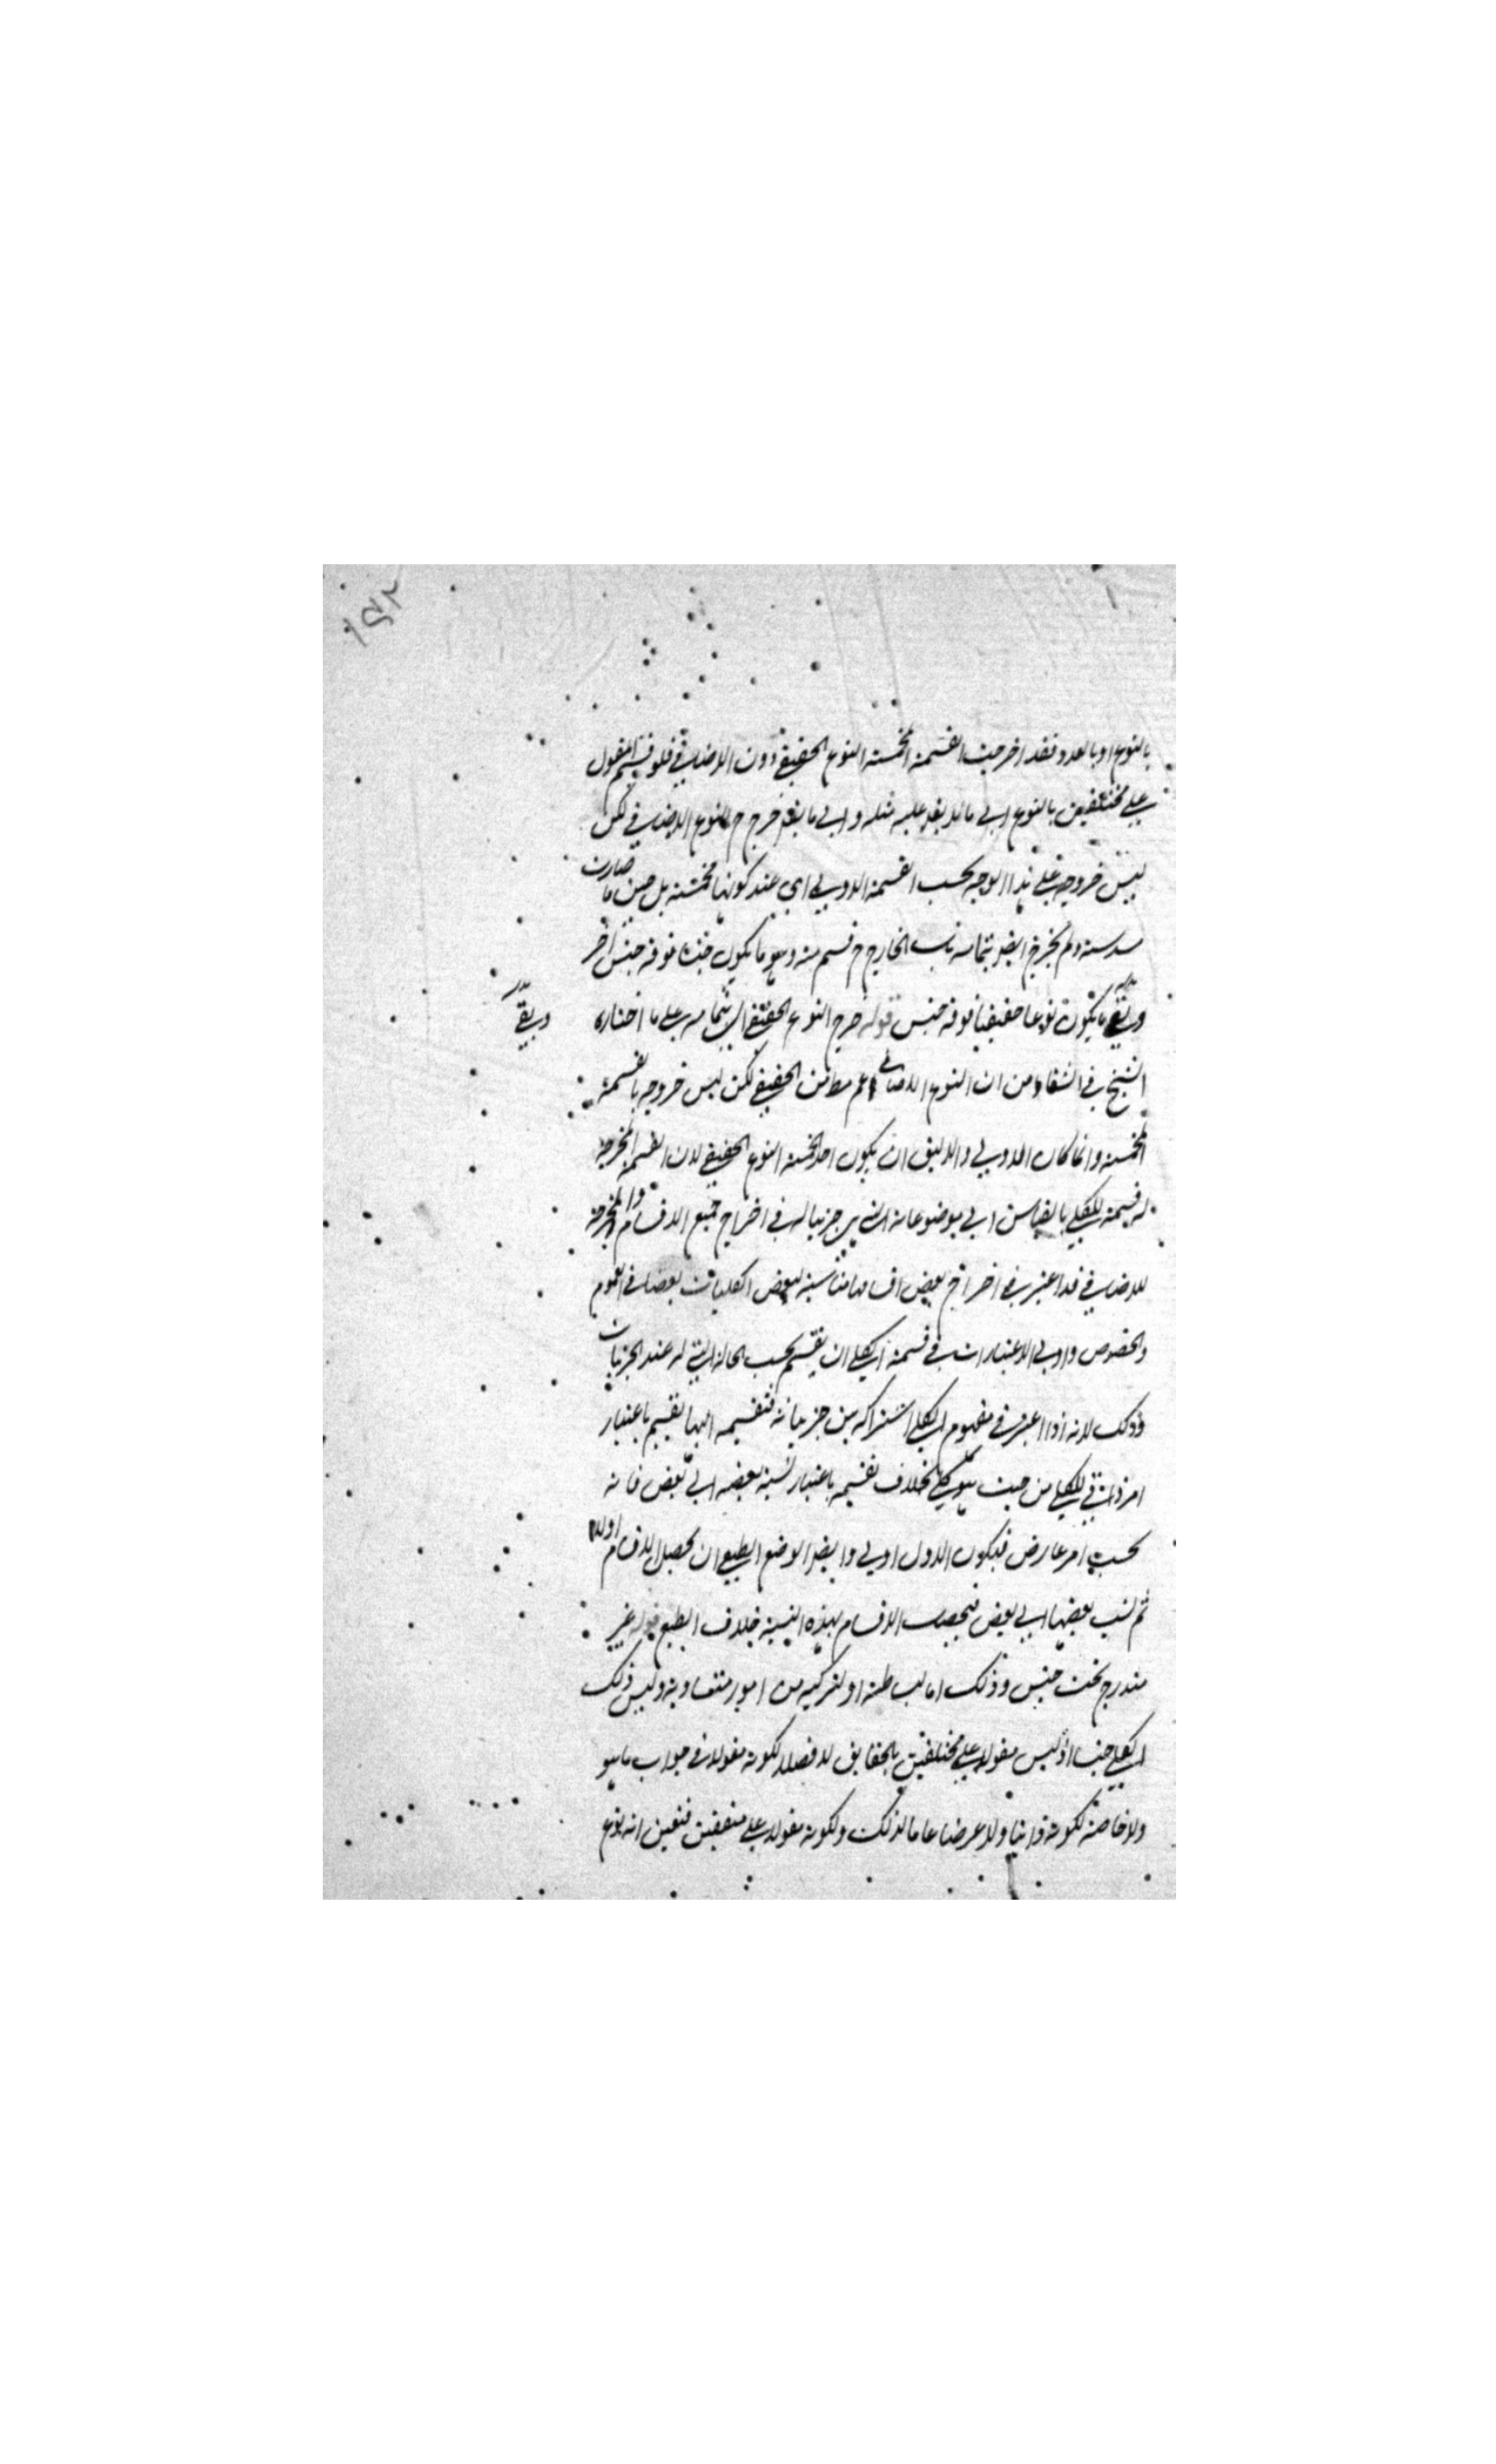 ١٤٢
بالنوع او بالعدد فقد اخرجت القسمة المخمسة النوع الحقيقي دون الاضافي فلو قسم المقول
على مختلفين بالنوع الى ما لا يقع عليه مثله والى ما يقع خرج ح النوع الاضافي لكن
ليس خروجه على هذا الوجه بحسب القسمة الاولى اي عند كونها مخمسة بل حين ما صارت
مسدسة ولم يخرج ايضا بتمامه بل الخارج ح قسم منه وهو ما يكون جنسا فوقه جنس آخر
وبقي ما يكون نوعا حقيقيا فوقه جنس قوله خرج النوع الحقيقي بتمامه على ما اختاره
وبقي
الشيخ في الشفاء من ان النوع الاضافي اعم مط من الحقيقي لكن ليس خروجه بالقسمة
المخمسة وانما كان الاولى والاليق ان يكون احد الخمسة النوع الحقيقي لان القسمة المخرجة
له قسمة للكلي بالقياس الى موضوعاته التي هي جزئياته في اخراج جميع الاقسام والمخرجة
للاضافي قد اعتبر في اخراج بعض اقسامها مناسبة لبعض الكليات بعضا في العموم
والخصوص واولى الاعتبارات في قسمة الكلي ان يقسم بحسب الحالة التي له عند الجزئيات
وذلك لانه اذا اعتبر في مفهوم الكلي اشتراكه بين جزئياته فتقسيمه اليها تقسيم باعتبار
امر ذاتي للكلي من حيث هو كلي بخلاف تقسيمه باعتبار نسبة بعضه الى بعض فانه
بحسب امر عارض فيكون الاول اولى وايضا الوضع الطبيعي ان يحصل الاقسام اولا
ثم نسب بعضها الى بعض فتحصيل الاقسام بهذه النسبة خلاف الطبع قوله غير
مندرج تحت جنس وذلك اما لبساطته او لتركبه من امور متساوية وليس ذلك
الكلي جنسا اذ ليس مقولا على مختلفين بالحقايق لا فصلا لكونه مقولا في جواب ما هو
ولا خاصة لكونه ذاتيا ولا عرضا عاما لذلك ولكونه مقولا على متفقين فتعين انه نوع